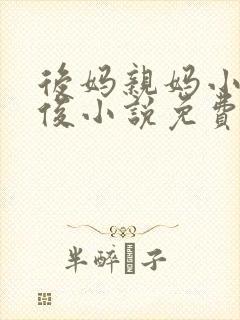 後妈親妈小
後小說免費
半醉�子